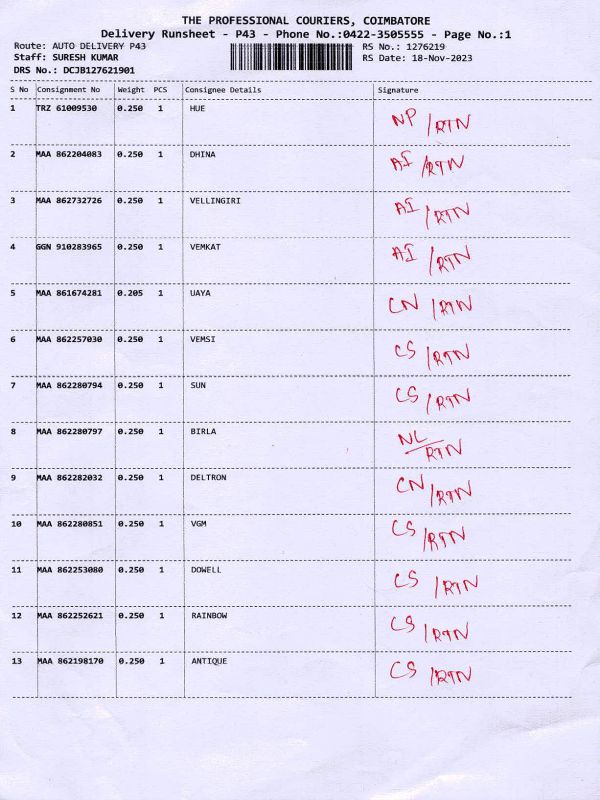 THE PROFESSIONAL COURIERS, COIMBATORE
Delivery Runsheet - P43 - Phone No.:0422-3505555 - Page No.:1
Route: AUTO DELIVERY P43 RS No.: 1276219
Staff: SURESH KUMAR RS Date: 18-Nov-2023
DRS No.: DCJB127621901
S No Consignment No Weight PCS Consignee Details Signature
1 TRZ 61009530 0.250 1 HUE NP /RTN
2 MAA 862204083 0.250 1 DHINA AI /RTN
3 MAA 862732726 0.250 1 VELLINGIRI AI /RTN
4 GGN 910283965 0.250 1 VEMKAT AI /RTN
5 MAA 861674281 0.205 1 UAYA CN /RTN
6 MAA 862257030 0.250 1 VEMSI CS /RTN
7 MAA 862280794 0.250 1 SUN CS /RTN
8 MAA 862280797 0.250 1 BIRLA NL/RTN
9 MAA 862282032 0.250 1 DELTRON CN /RTN
10 MAA 862280851 0.250 1 VGM CS /RTN
11 MAA 862253080 0.250 1 DOWELL CS /RTN
12 MAA 862252621 0.250 1 RAINBOW CS /RTN
13 MAA 862198170 0.250 1 ANTIQUE CS /RTN